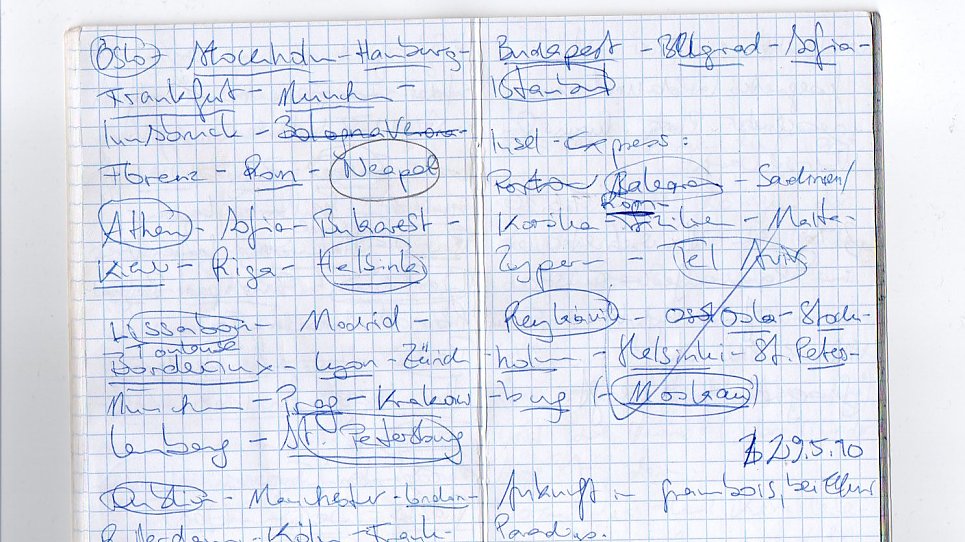 Oslo - Stockholm - Hamburg -
Frankfurt - München -
Innsbruck - Bologna Verona -
Florenz - Rom - Neapel
Athen - Sofia - Bukarest -
Kiew - Riga - Helsinki
Lissabon - Madrid -
Toulouse
Bordeaux - Lyon - Zürich -
München - Prag - Krakow -
Lemberg - St. Petersburg
Dublin - Manchester - London -
Rotterdam - Köln - Frank-
Budapest - Belgrad - Sofia -
Istanbul
Insel - Express:
Balearen - Sardinien/
Rom -
Korsika - Sizilien - Malta -
Zypern - Tel Aviv
Reykjavik - Oslo - Stock-
holm - Helsinki - St. Peters-
burg (- Moskau)
29.5.10
Ankunft in Grambois, bei